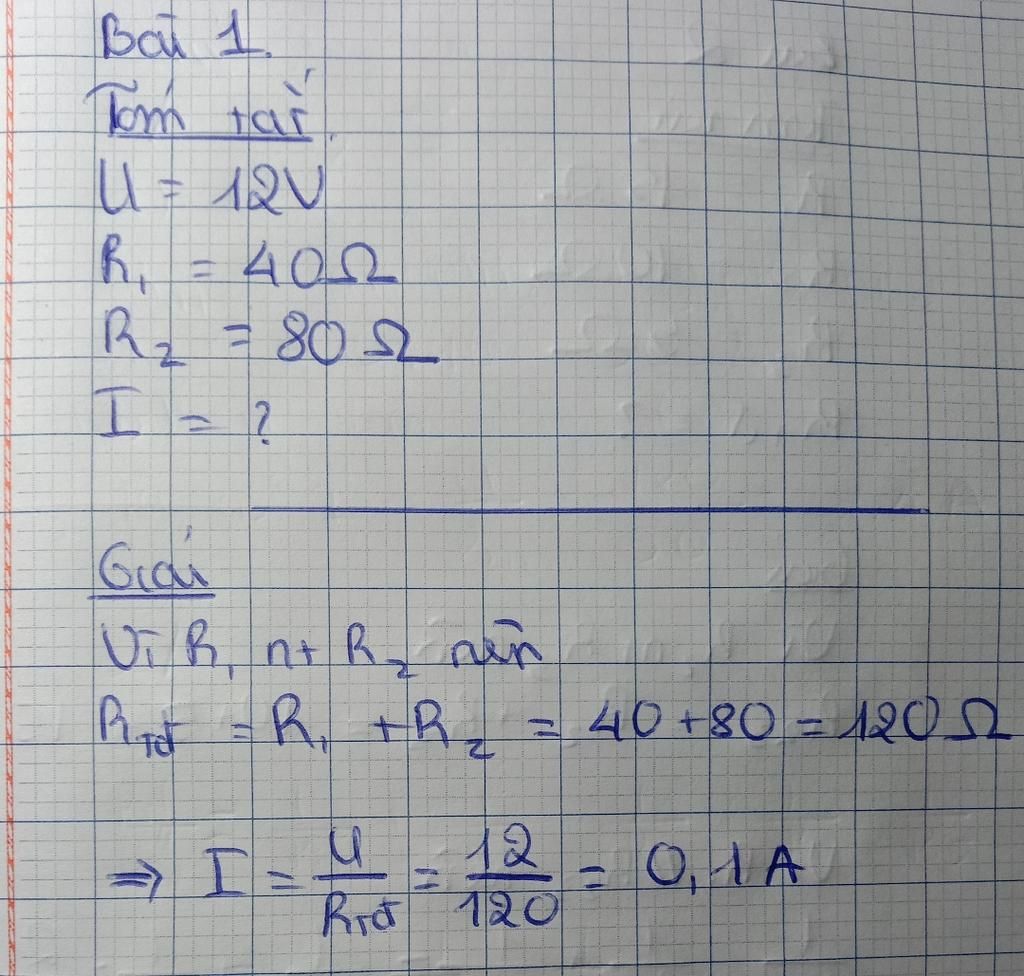 Bài 1.
Tóm tắt.
U = 12V
R₁ = 40Ω
R₂ = 80Ω
I = ?
Giải
Vì R₁ nt R₂ nên
Rtđ = R₁ + R₂ = 40 + 80 = 120Ω
⇒ I = U/Rtđ = 12/120 = 0,1A